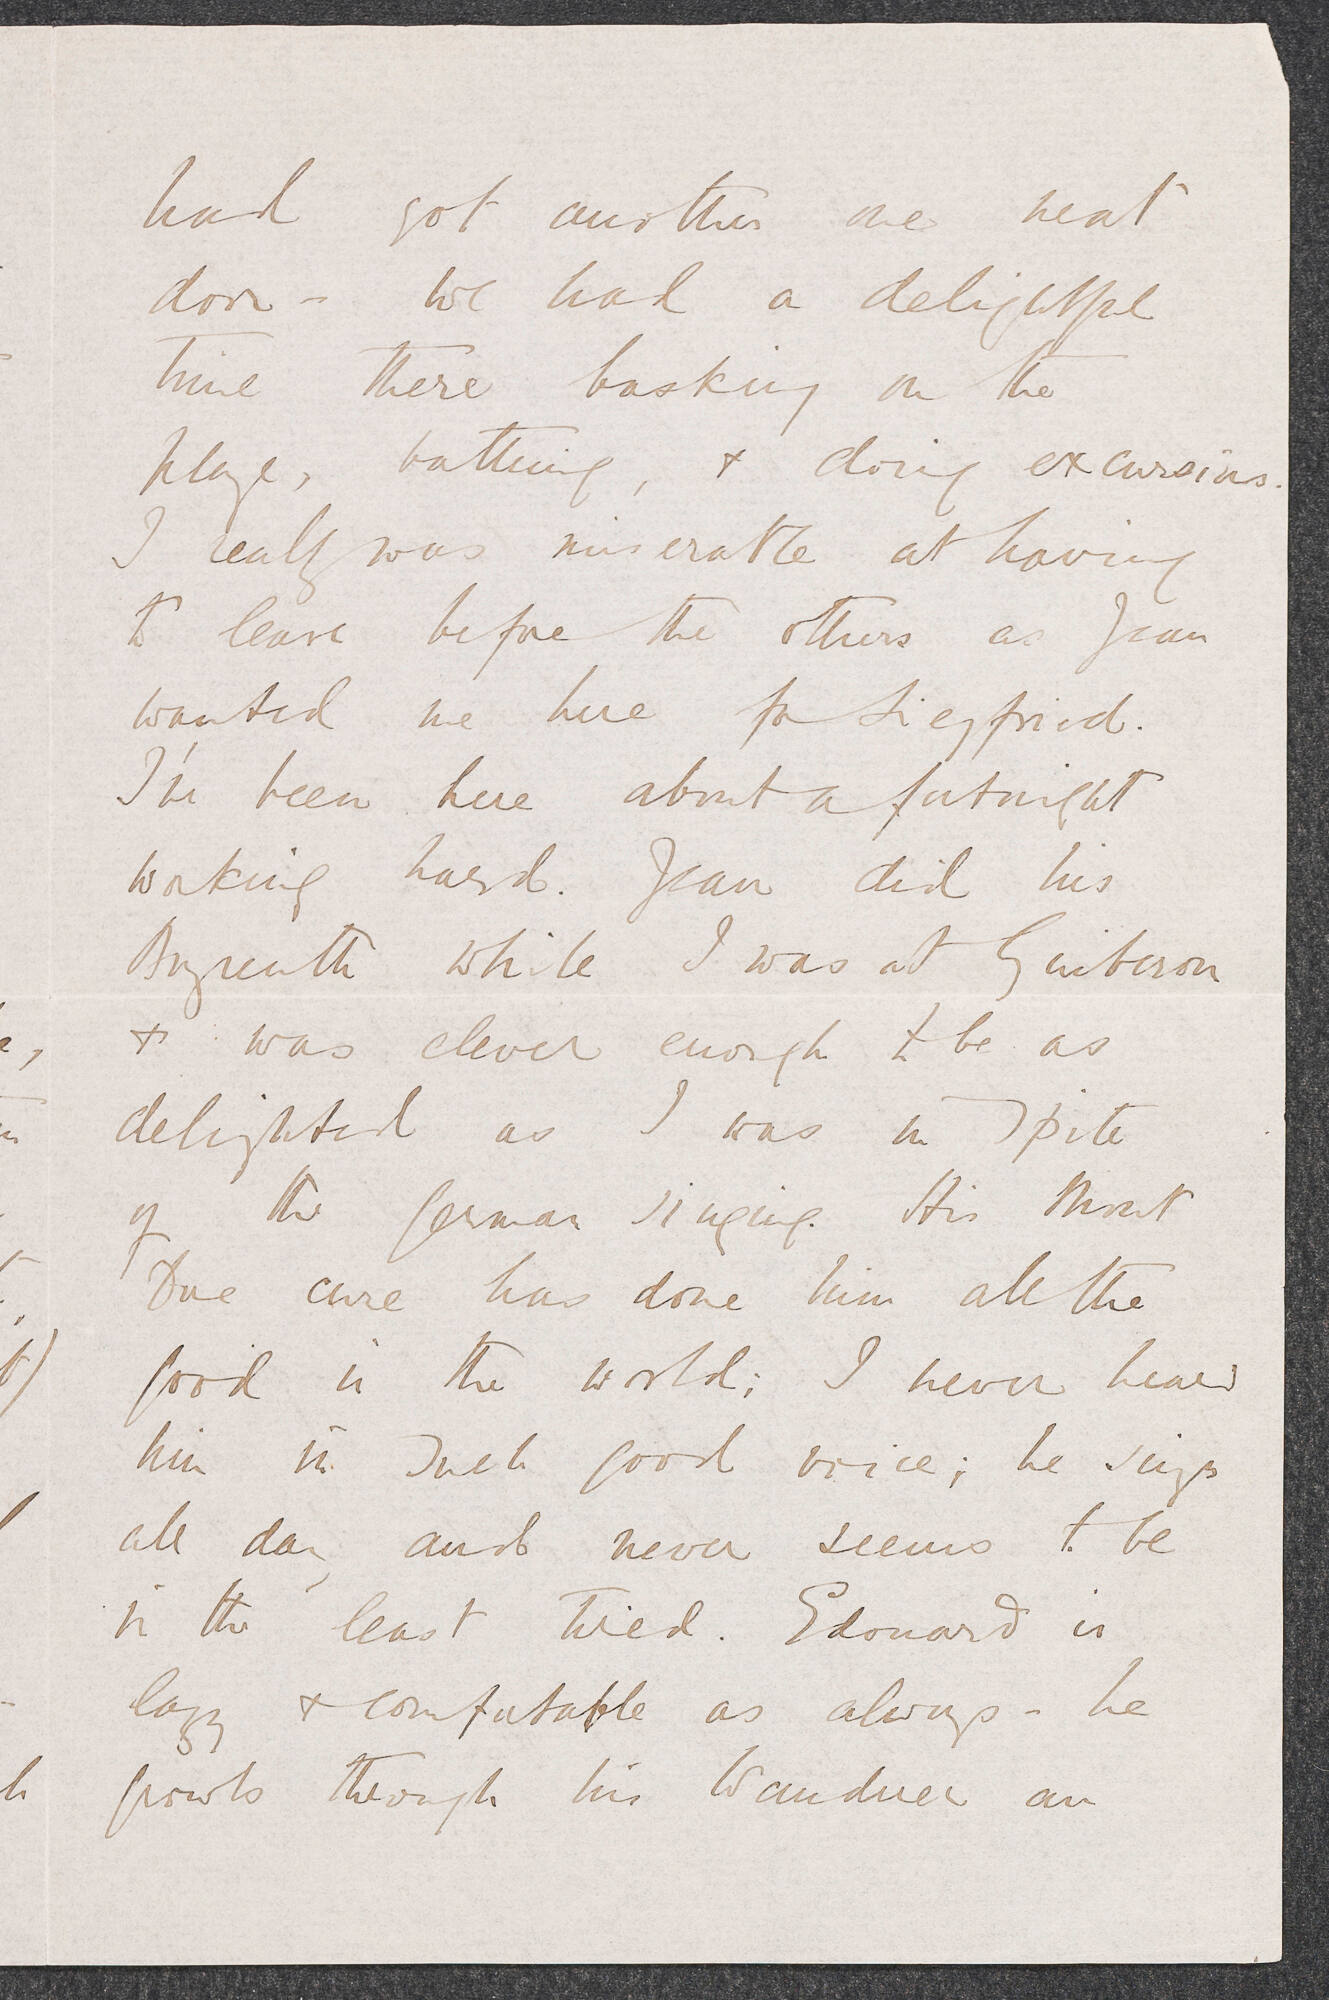 had got another one next
door - We had a delightful
time there basking on the
plage, bathing, & doing excursions.
I really was miserable at having
to leave before the others as Jean
wanted me here for Siegfried.
I've been here about a fortnight
working hard. Jean did his
Bayreuth while I was at Quiberon
& was clever enough to be as
delighted as I was in spite
of the German singing. His Mont
Dore cure has done him all the
good in the world; I never heard
him in such good voice; he sings
all day and never seems to be
in the least tired. Edouard is
lazy & comfortable as always - he
growls through his Wanderer an